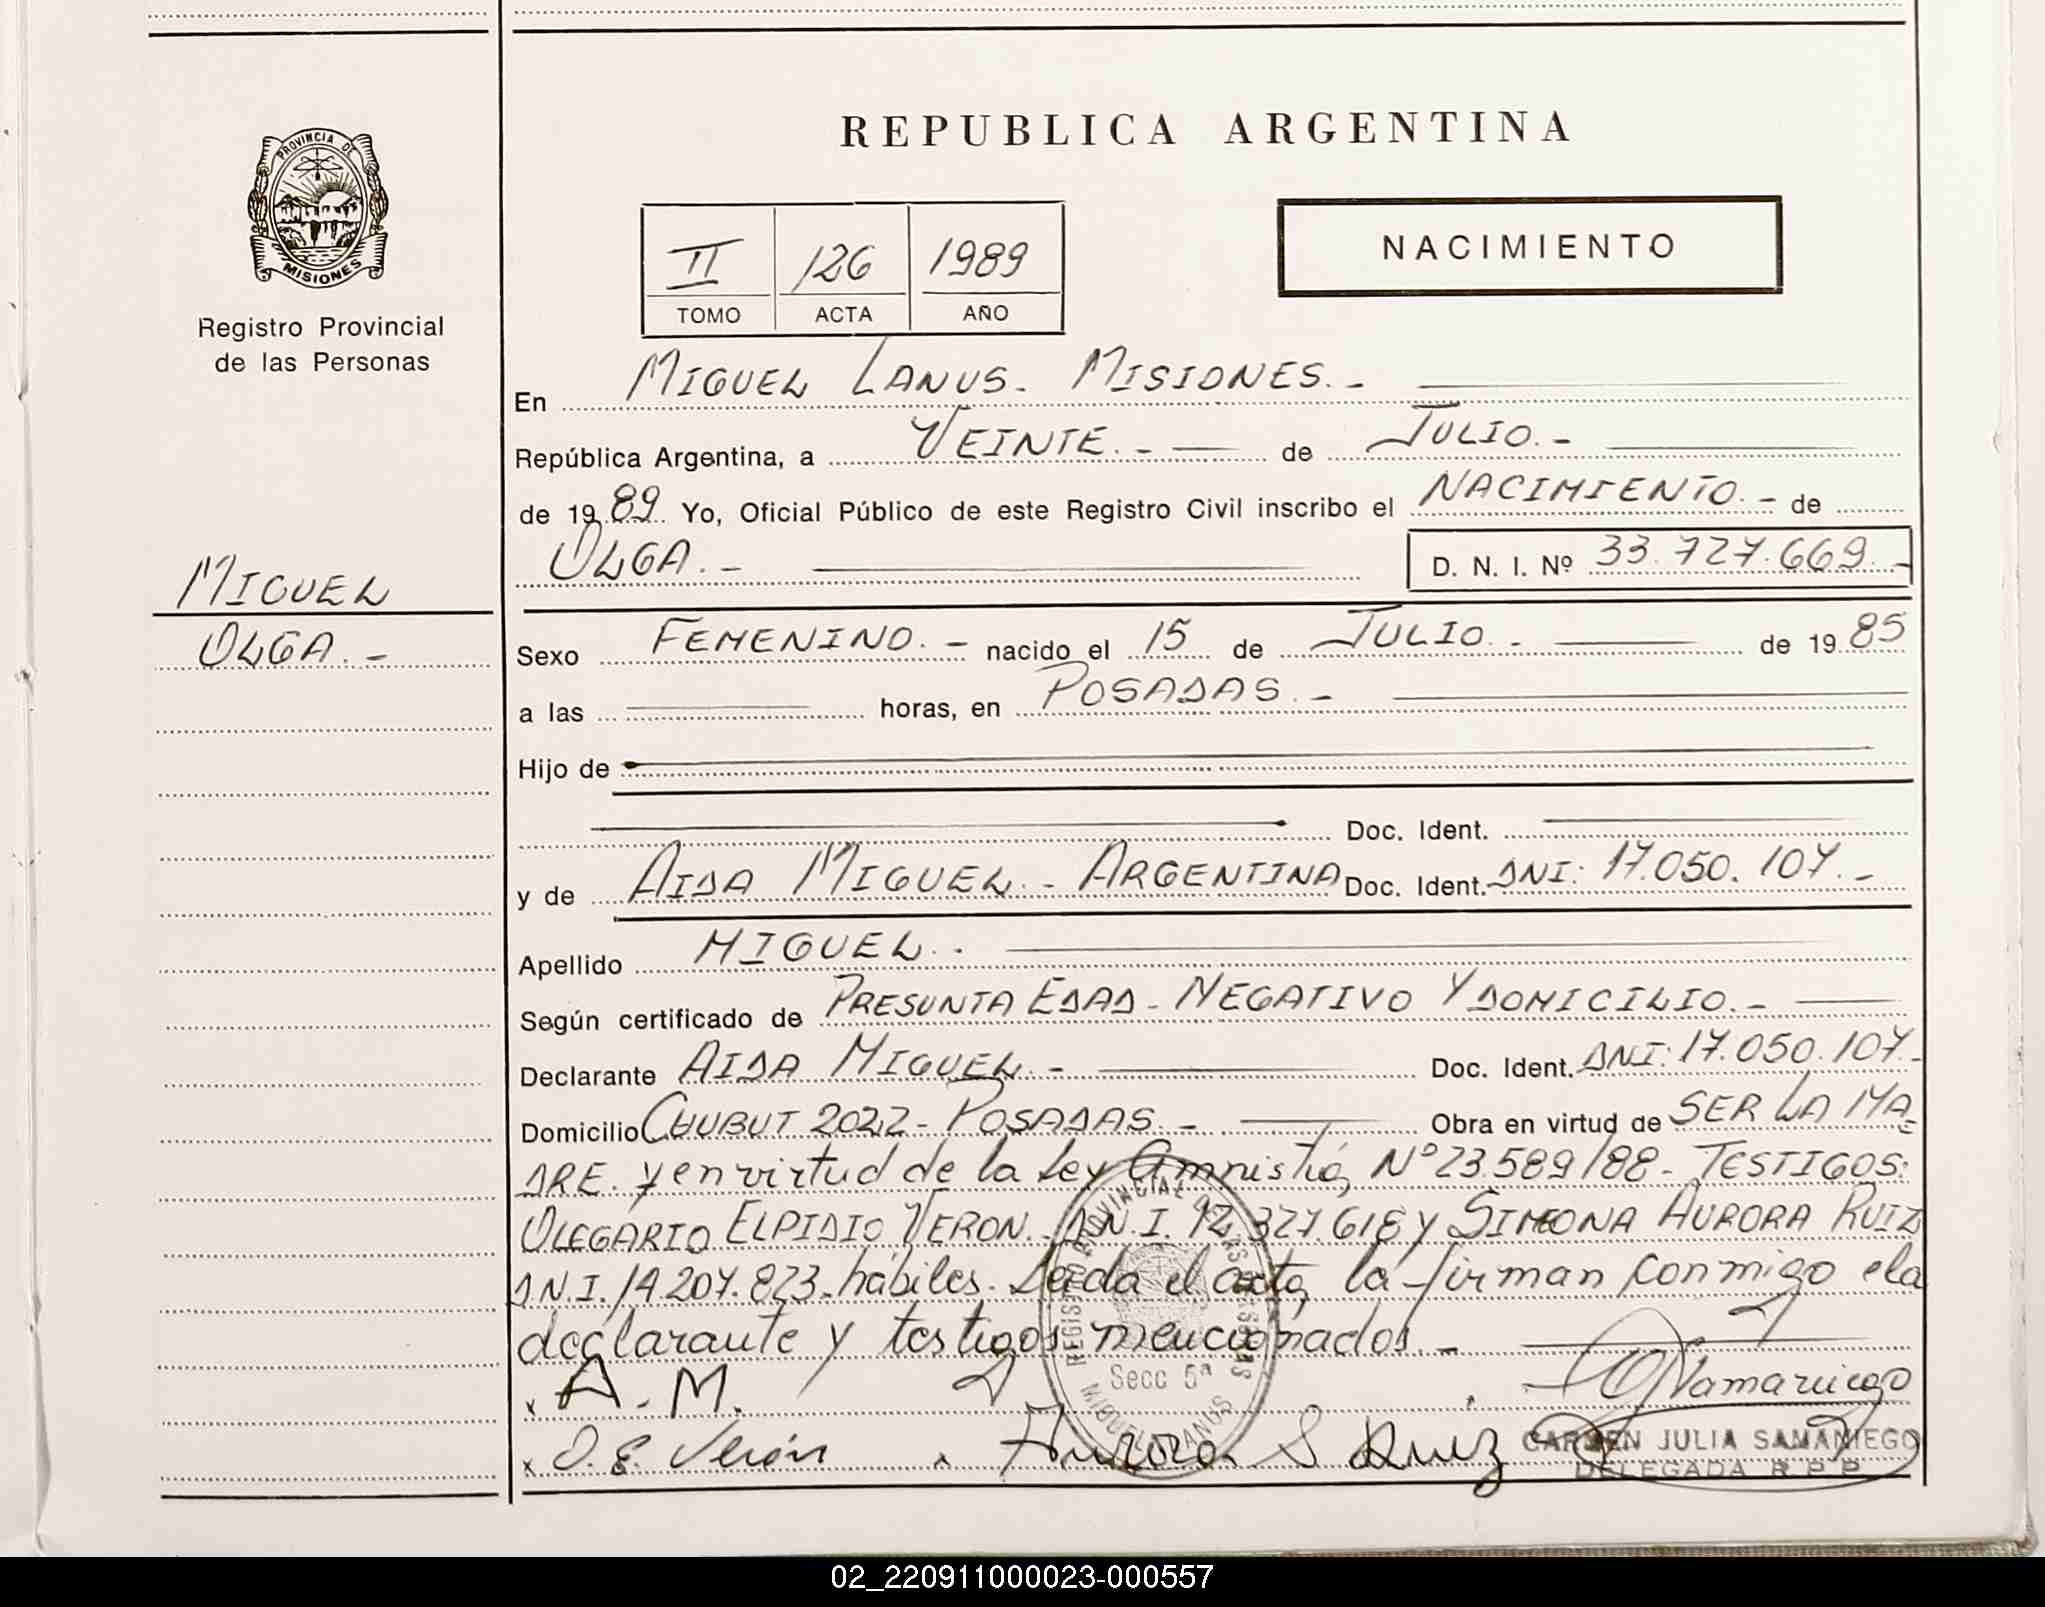 PROVINCIA DE
MISIONES
Registro Provincial
de las Personas
MIGUEL
OLGA.-
REPUBLICA ARGENTINA
II 126 1989
TOMO ACTA AÑO
NACIMIENTO
En MIGUEL LANUS. MISIONES.-
República Argentina, a VEINTE.- de JULIO.-
de 1989 Yo, Oficial Público de este Registro Civil inscribo el NACIMIENTO.- de
OLGA.- D. N. I. Nº 33.727.669.-
Sexo FEMENINO.- nacido el 15 de JULIO.- de 1985
a las horas, en POSADAS.-
Hijo de
Doc. Ident.
y de AIDA MIGUEL.- ARGENTINA Doc. Ident. DNI: 17.050.107.-
Apellido MIGUEL.
Según certificado de PRESUNTA EDAD - NEGATIVO Y DOMICILIO.-
Declarante AIDA MIGUEL.- Doc. Ident. DNI: 17.050.107.-
Domicilio CHUBUT 2022 - POSADAS.- Obra en virtud de SER LA MA-
DRE. y en virtud de la Ley Amnistía Nº 23.589/88 - TESTIGOS:
OLEGARIO ELPIDIO VERON. D.N.I. 12.327.618 y SIMONA AURORA RUIZ
D.N.I. 14.207.823. hábiles. Leida el acta, la firman conmigo ela
declarante y testigos mencionados.-
x A. M.
x O. E. Verón x Aurora S Ruiz
REGISTRO PROVINCIAL DE LAS PERSONAS
Secc 5ª
MIGUEL LANUS
Samaniego
CARMEN JULIA SAMANIEGO
DELEGADA R.P.P.
02_220911000023-000557